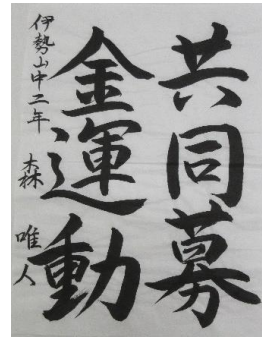 共同募
金運動
伊勢山中二年 森 唯人